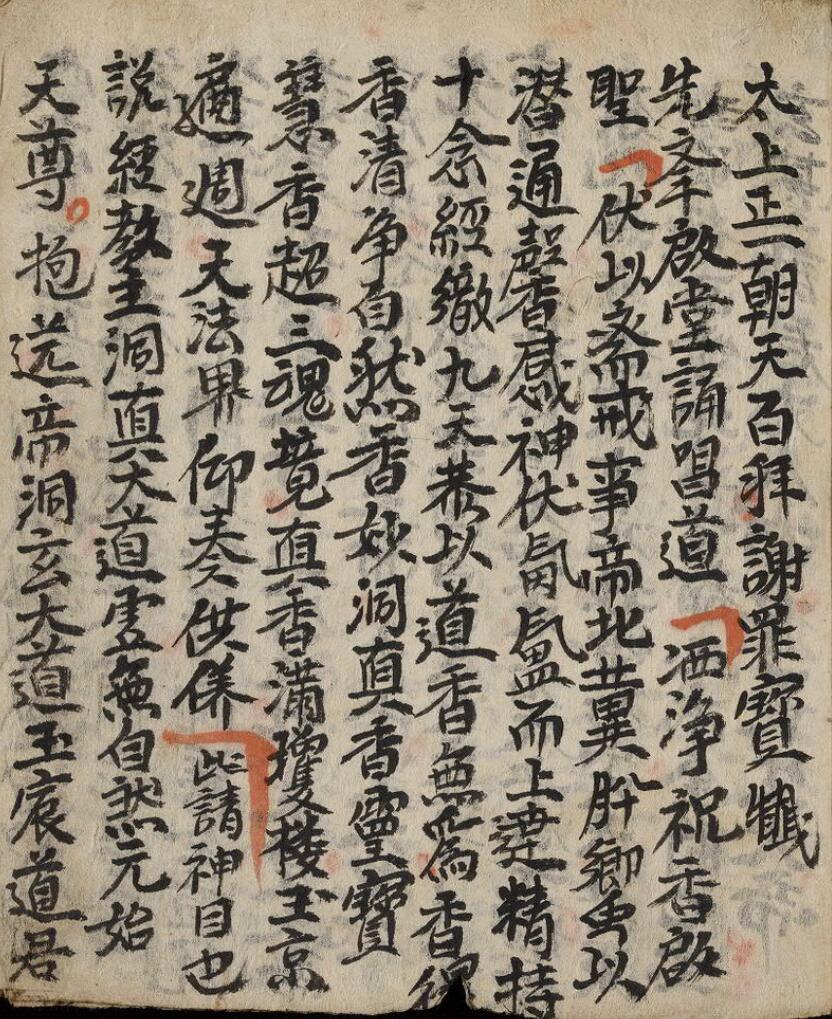 太上正一朝天百拜謝罪寶懺
先文牢啟堂誦唱道 洒淨祝香啟
聖 伏以斎戒事啇北冀肸卿由以
潜通馨香感神伏氤氲而上達精持
十念經徹九天恭以道香無為香
香清净自然香妙洞真香靈寶
慧香超三魂境真香滿瓊楼玉京
遍週天法界仰奏供養此請神目也
説經教主洞真大道虚無自然元始
天尊抱送帝洞玄大道玉宸道君